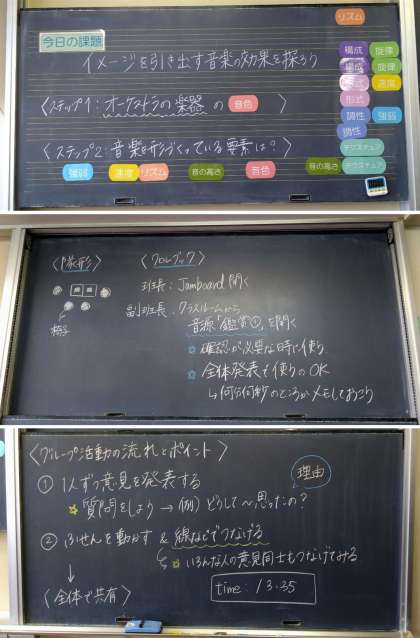 リズム
今日の課題
イメージを引き出す音楽の効果を探ろう
構成 旋律
構成 旋律
形式 速度
形式
調性 強弱
調性
テクスチュア
テクスチュア
〈ステップ1：オーケストラの楽器 の 音色 〉
〈ステップ2：音楽を形づくっている要素は？〉
強弱 速度 リズム 音の高さ 音色 音の高さ
〈隊形〉
机 机
椅子
〈クロムブック〉
班長：Jamboard開く
副班長：クラスルームから
音源「鑑賞①」を開く
☆確認が必要な時に使う
☆全体発表で使うのOK
↳何分何秒のところかメモしておこう
〈グループ活動の流れとポイント〉
① 1人ずつ意見を発表する
理由
☆質問をしよう → (例) どうして〜思ったの？
② ふせんを動かす & 線などでつなげる
☆いろんな人の意見同士もつなげてみる
↓
〈全体で共有〉
time: 13:35